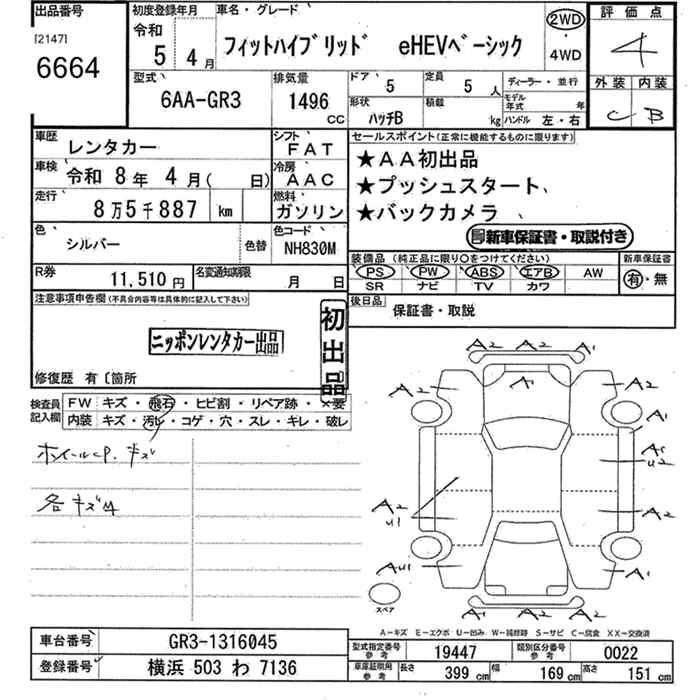 出品番号
[2147]
6664
初度登録年月
令和
5 4月
車名・グレード
フィットハイブリッド eHEVベーシック
2WD
・
4WD
評価点
4
外装 内装
C B
型式
6AA-GR3
排気量
1496
CC
ドア 5
定員 5人
ディーラー・並行
形状 ハッチB
積載 kg
モデル年式 年
ハンドル 左・右
車歴 レンタカー
シフト FAT
車検 令和 8年 4月( 日)
冷房 AAC
走行 8万5千887 km
燃料 ガソリン
色 シルバー
色替
色コード NH830M
R券 11,510円
名変通知期限 月 日
セールスポイント(正常に機能するものに限ります)
★AA初出品
★プッシュスタート
★バックカメラ
新車保証書・取説付き
装備品(純正品に限り○をつけてください)
新車保証書
PS PW ABS エアB AW
有・無
SR ナビ TV カワ
後日品 保証書・取説
注意事項申告欄(不具合内容等は具体的に記入して下さい)
ニッポンレンタカー出品
初出品
修復歴 有〔箇所
検査員記入欄
FW キズ・飛石・ヒビ割・リペア跡・×要
内装 キズ・汚レ・コゲ・穴・スレ・キレ・破レ
ホイールCP. キズ
各キズ凹
A2 A2 A1
A2 A1 A2
A1
A1
U2
A2
U1
A2
AU1
A1
スペア
A-キズ E-エクボ U-凹み W-補修跡 S-サビ C-腐食 XX-交換済
車台番号 GR3-1316045
登録番号 横浜 503 わ 7136
型式指定番号参考 19447
類別区分番号参考 0022
車庫証明用参考 長さ 399 cm 幅 169 cm 高さ 151 cm